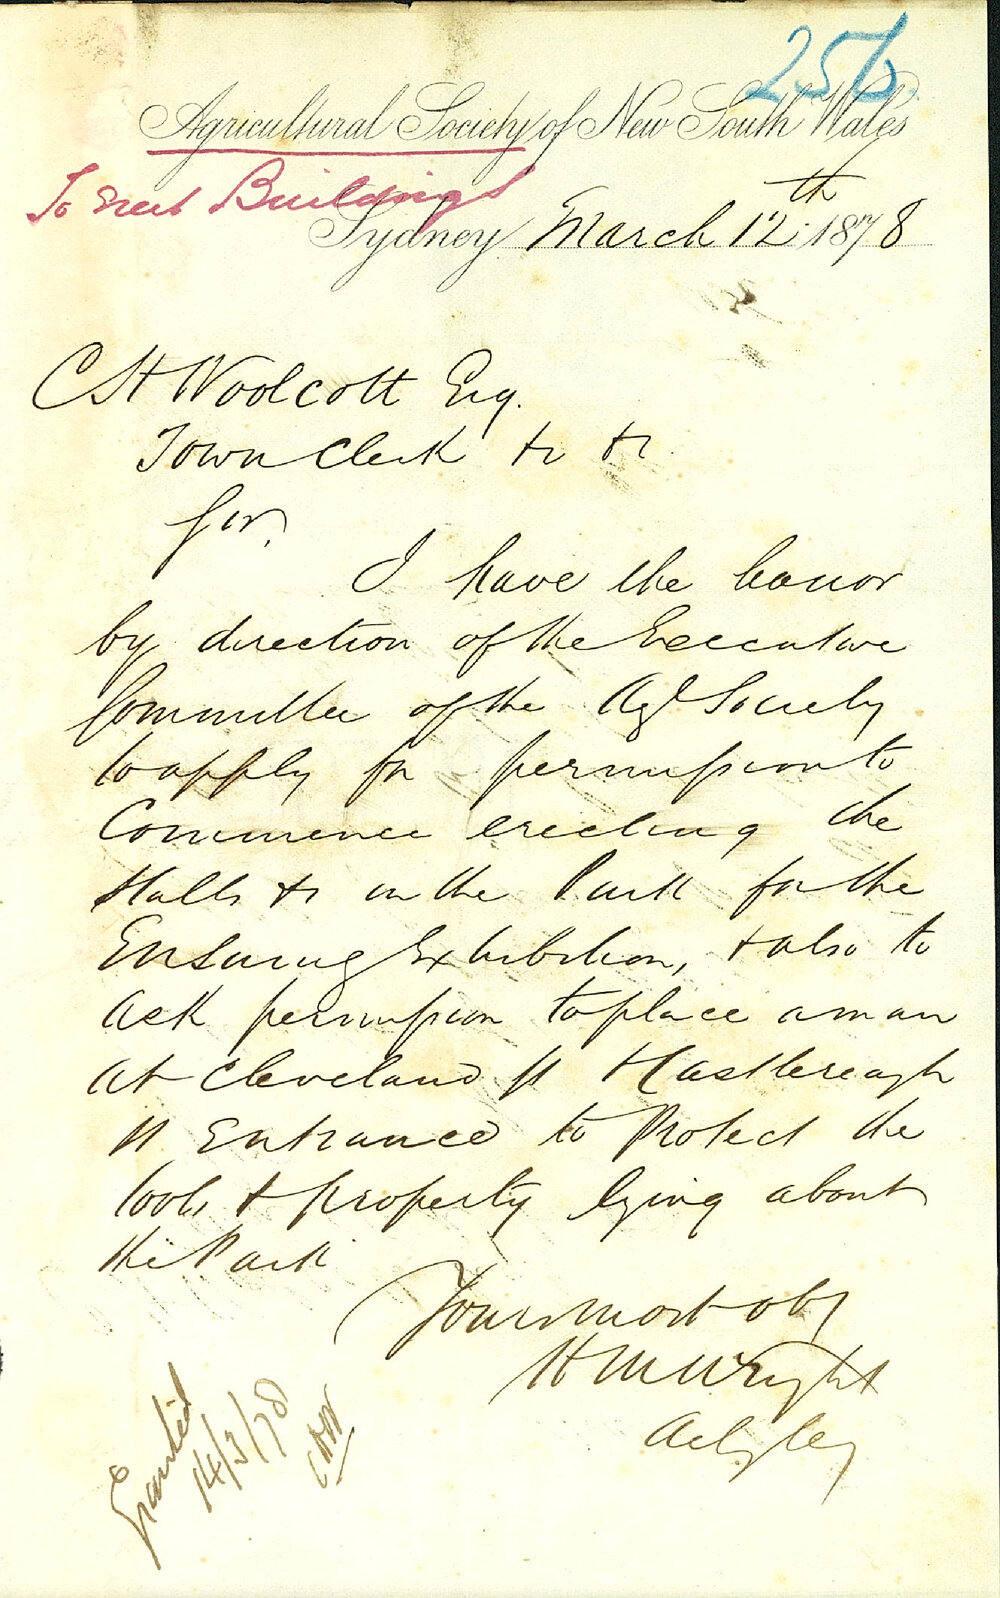 256
Agricultural Society of New South Wales
To Erect Buildings
Sydney March 12th 1878
C H Woolcott Esq.
Town Clerk &c &c
Sir,
I have the honor
by direction of the Executive
Committee of the Agl Society
to apply for permission to
Commence erecting the
Stalls &c in the Park for the
Ensuing Exhibition, & also to
ask permission to place a man
at Cleveland St & Castlereagh
St Entrance to Protect the
tools & property lying about
the Park
Yours most oby
H M Wright
Actg Sey
Granted
14/3/78
CHW